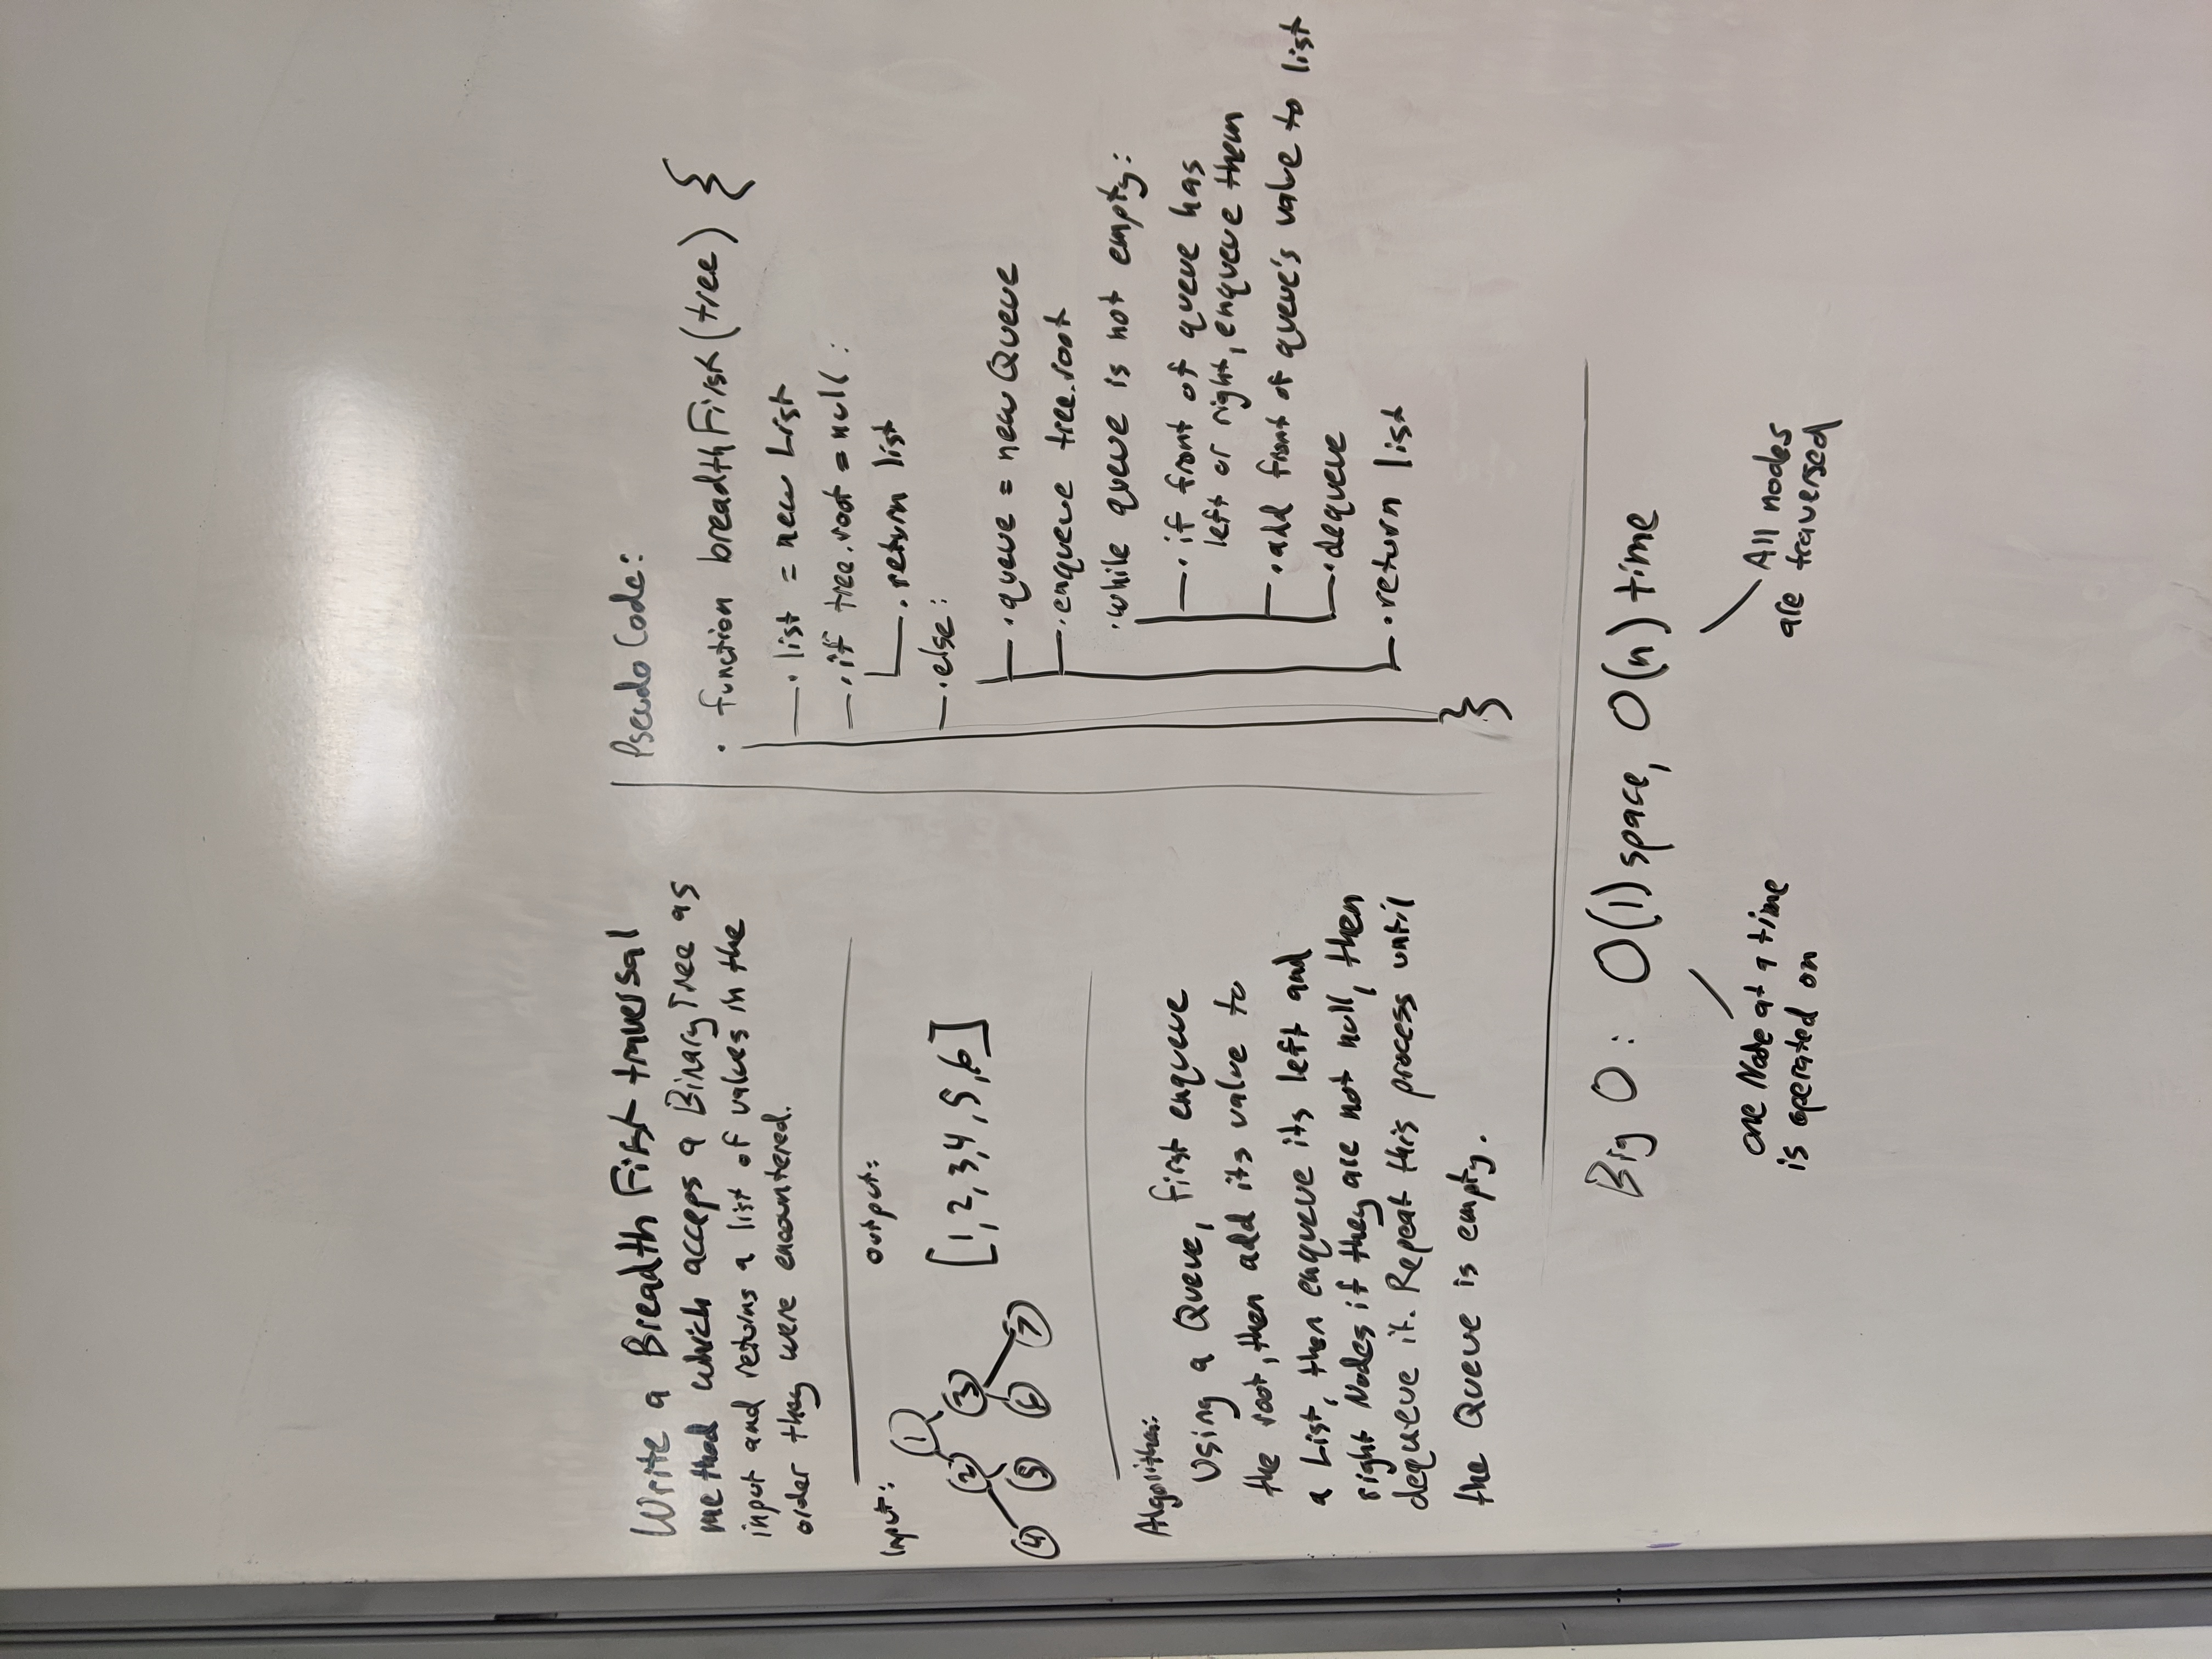 Write a Breadth First traversal
method which acceps a Binary Tree as
input and returns a list of values in the
order they were encountered.
Input:
1
2 3
4 5 6 7
Output:
[1,2,3,4,5,6]
Algorithm:
Using a Queue, first enqueue
the root, then add its value to
a List, then enqueue its left and
right Nodes if they are not null, then
dequeue it. Repeat this process until
the Queue is empty.
Pseudo Code:
· function breadthFirst(tree) {
· list = new List
· if tree.root = null :
· return list
· else :
· queue = new Queue
· enqueue tree.root
· while queue is not empty:
· if front of queue has
left or right, enqueue them
· add front of queue's value to list
· dequeue
· return list
}
Big O : O(1) space, O(n) time
one Node at a time
is operated on
All nodes
are traversed